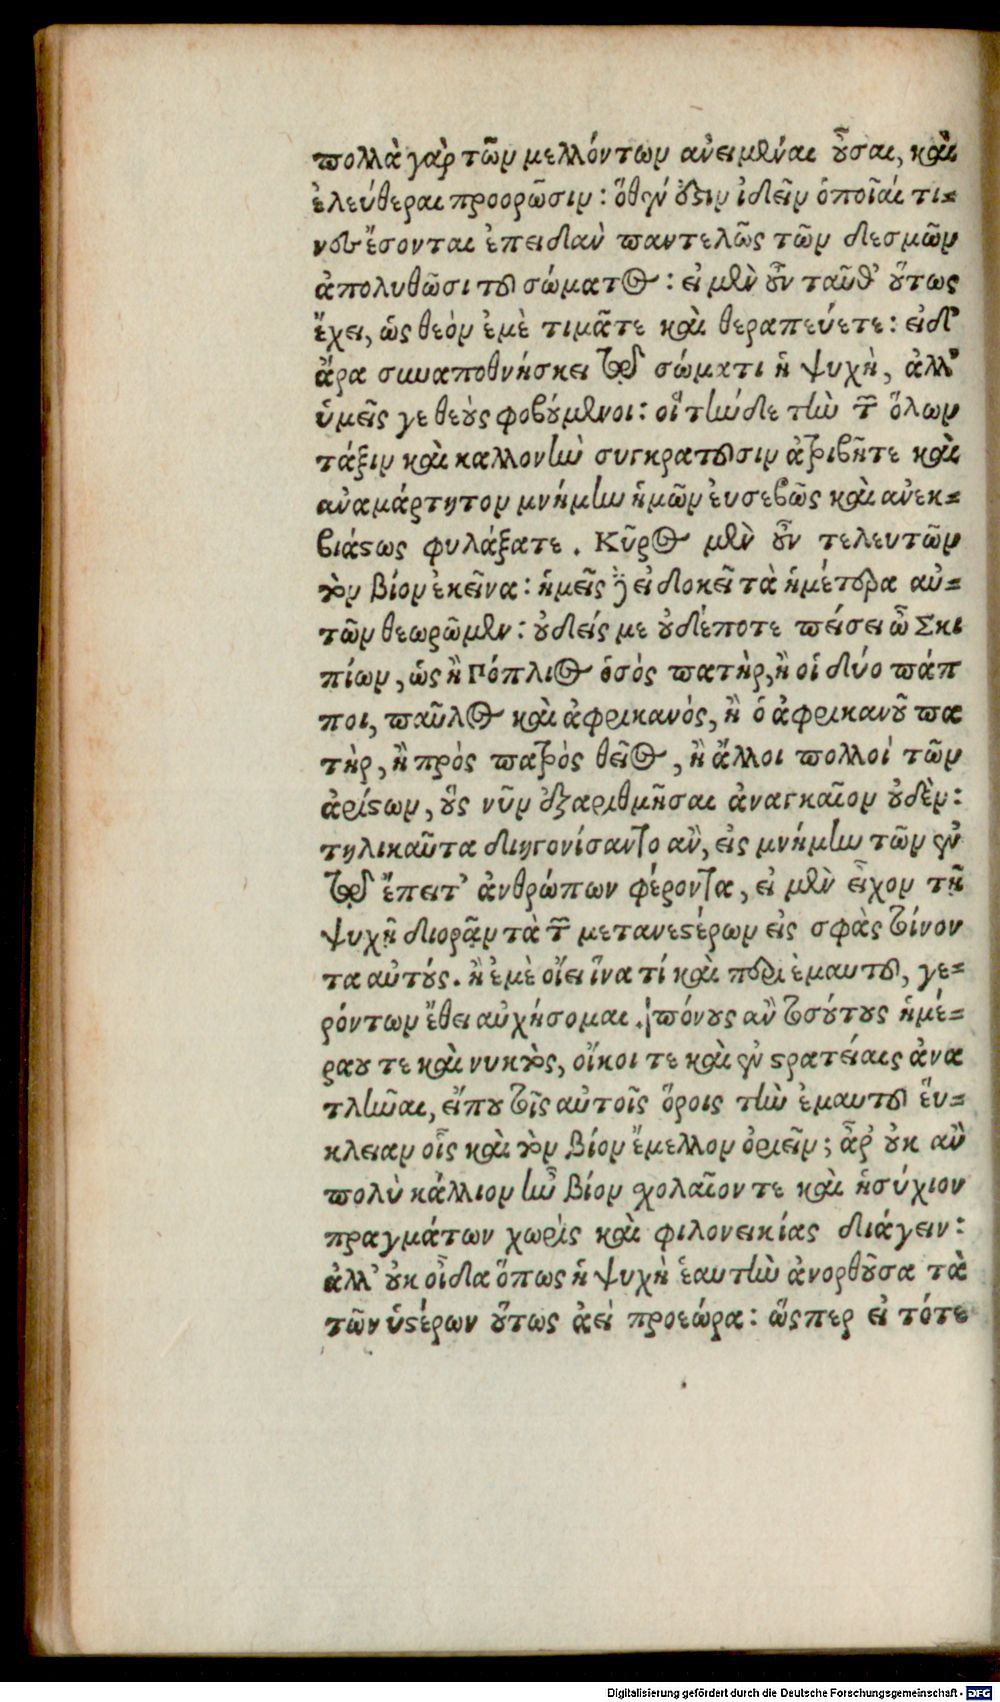 πολλὰ γὰρ τῶν μελλόντων ἀνειμέναι οὖσαι, καὶ
ἐλεύθεραι προορῶσιν: ὅθεν ἔστιν ἰδεῖν ὁποῖαί τι-
νες ἔσονται ἐπειδὰν παντελῶς τῶν δεσμῶν
ἀπολυθῶσι τοῦ σώματος: εἰ μὲν οὖν ταῦθ' οὕτως
ἔχει, ὡς θεὸν ἐμὲ τιμᾶτε καὶ θεραπεύετε: εἰ δ'
ἄρα συναποθνήσκει τῷ σώματι ἡ ψυχὴ, ἀλλ'
ὑμεῖς γε θεοὺς φοβούμενοι: οἳ τήνδε τὴν τῶν ὅλων
τάξιν καὶ καλλονὴν συγκρατοῦσιν ἀκριβῆτε καὶ
ἀναμάρτητον μνήμην ἡμῶν ἐυσεβῶς καὶ ἀνεκ-
βιάστως φυλάξατε. Κῦρος μὲν οὖν τελευτῶν
τὸν βίον ἐκεῖνα: ἡμεῖς δὲ εἰ δοκεῖ τὰ ἡμέτερα αὐ-
τῶν θεωρῶμεν: οὐδείς με οὐδέποτε πείσει ὦ Σκι
πίων, ὡς ἢ Πόπλιος ὁ σὸς πατὴρ, ἢ οἱ δύο πάπ
ποι, παῦλος καὶ ἀφρικανός, ἢ ὁ ἀφρικανοῦ πα
τὴρ, ἢ πρὸς πατρὸς θεῖος, ἢ ἄλλοι πολλοὶ τῶν
ἀρίστων, οὓς νῦν ἐξαριθμῆσαι ἀναγκαῖον οὐδὲν:
τηλικαῦτα διηγονίσαντο ἂν, εἰς μνήμην τῶν ἐν
τῷ ἔπειτ' ἀνθρώπων φέροντα, εἰ μὲν εἶχον τῇ
ψυχῇ διορᾷν τὰ τῶν μετανεστέρων εἰς σφὰς τείνον
τα αὐτούς. ἢ ἐμὲ οἴει ἵνα τί καὶ περὶ ἐμαυτοῦ, γε-
ρόντων ἔθει αὐχήσομαι. πόνους ἂν τοσούτους ἡμέ-
ρας τε καὶ νυκτὸς, οἴκοι τε καὶ ἐν στρατείαις ἀνα
τλῆναι, εἴπου τοῖς αὐτοῖς ὅροις τὴν ἐμαυτοῦ ἔυ-
κλειαν οἷς καὶ τὸν βίον ἔμελλον ὁριεῖν; ἆρ' οὐκ ἂν
πολὺ κάλλιον ἦν βίον σχολαῖον τε καὶ ἡσύχιον
πραγμάτων χωρὶς καὶ φιλονεικίας διάγειν:
ἀλλ' οὐκ οἶδα ὅπως ἡ ψυχὴ ἑαυτὴν ἀνορθοῦσα τὰ
τῶν ὑστέρων οὕτως ἀεὶ προεώρα: ὥσπερ εἰ τότε
Digitalisierung gefördert durch die Deutsche Forschungsgemeinschaft - DFG